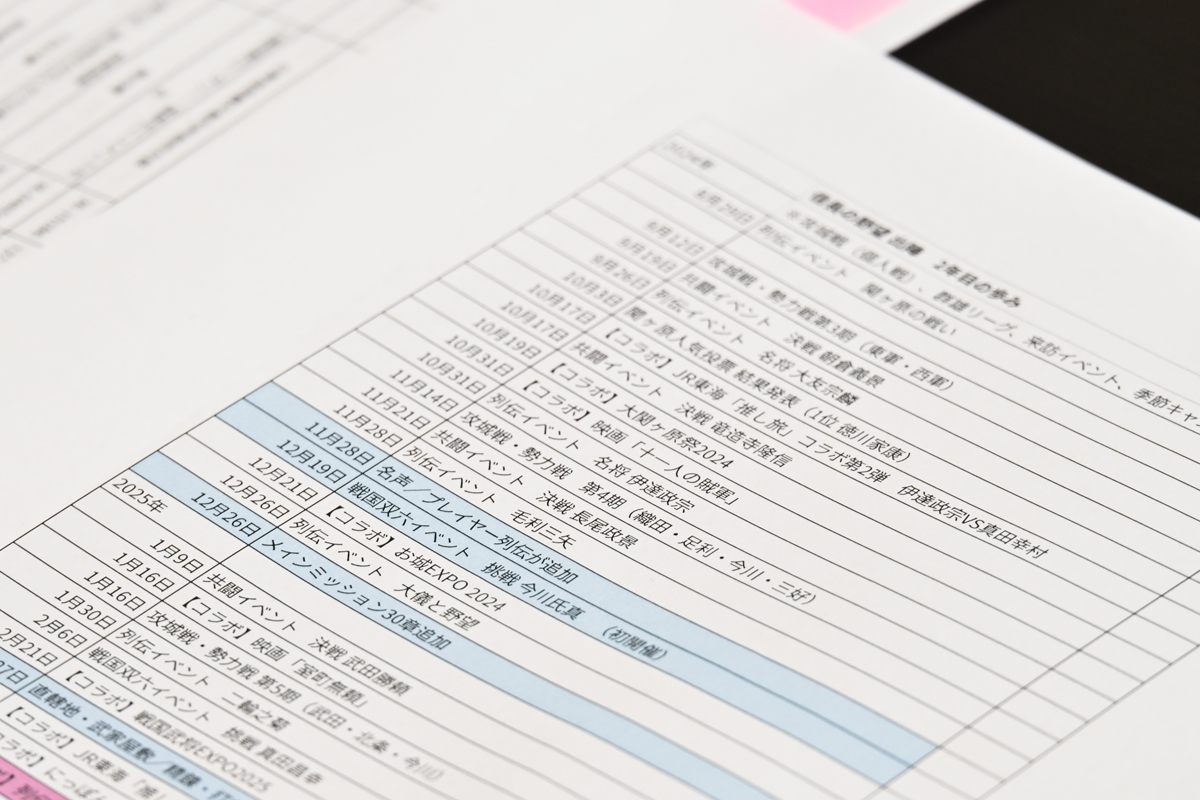 信長の野望 出陣　2年目の歩み
2024年 ※攻城戦（個人戦）、群雄リーグ、来訪イベント、季節キャ
8月29日 列伝イベント　関ヶ原の戦い
9月12日 攻城戦・勢力戦第3期（東軍・西軍）
9月19日 共闘イベント　決戦 朝倉義景
9月26日 列伝イベント　名将 大友宗麟
10月3日 関ヶ原人気投票 結果発表（1位 徳川家康）
10月17日 【コラボ】JR東海「推し旅」コラボ第2弾　伊達政宗VS真田幸村
10月17日 共闘イベント　決戦 竜造寺隆信
10月19日 【コラボ】大関ヶ原祭2024
10月31日 【コラボ】映画「十一人の賊軍」
10月31日 列伝イベント　名将 伊達政宗
11月14日 攻城戦・勢力戦　第4期（織田・足利・今川・三好）
11月21日 共闘イベント　決戦 長尾政景
11月28日 列伝イベント　毛利三矢
11月28日 名声／プレイヤー列伝が追加
12月19日 戦国双六イベント　挑戦 今川氏真　（初開催）
12月21日 【コラボ】お城EXPO 2024
12月26日 列伝イベント　大儀と野望
12月26日 メインミッション30章追加
2025年
1月9日 共闘イベント　決戦 武田勝頼
1月16日 【コラボ】映画「室町無頼」
1月16日 攻城戦・勢力戦 第5期（武田・北条・今川）
1月30日 列伝イベント　二輪之菊
2月6日 戦国双六イベント　挑戦 真田昌幸
2月21日 【コラボ】戦国武将EXPO2025
27日 直轄地・武家屋敷／
【コラボ】JR東海「推し
コラボ】にっぽん